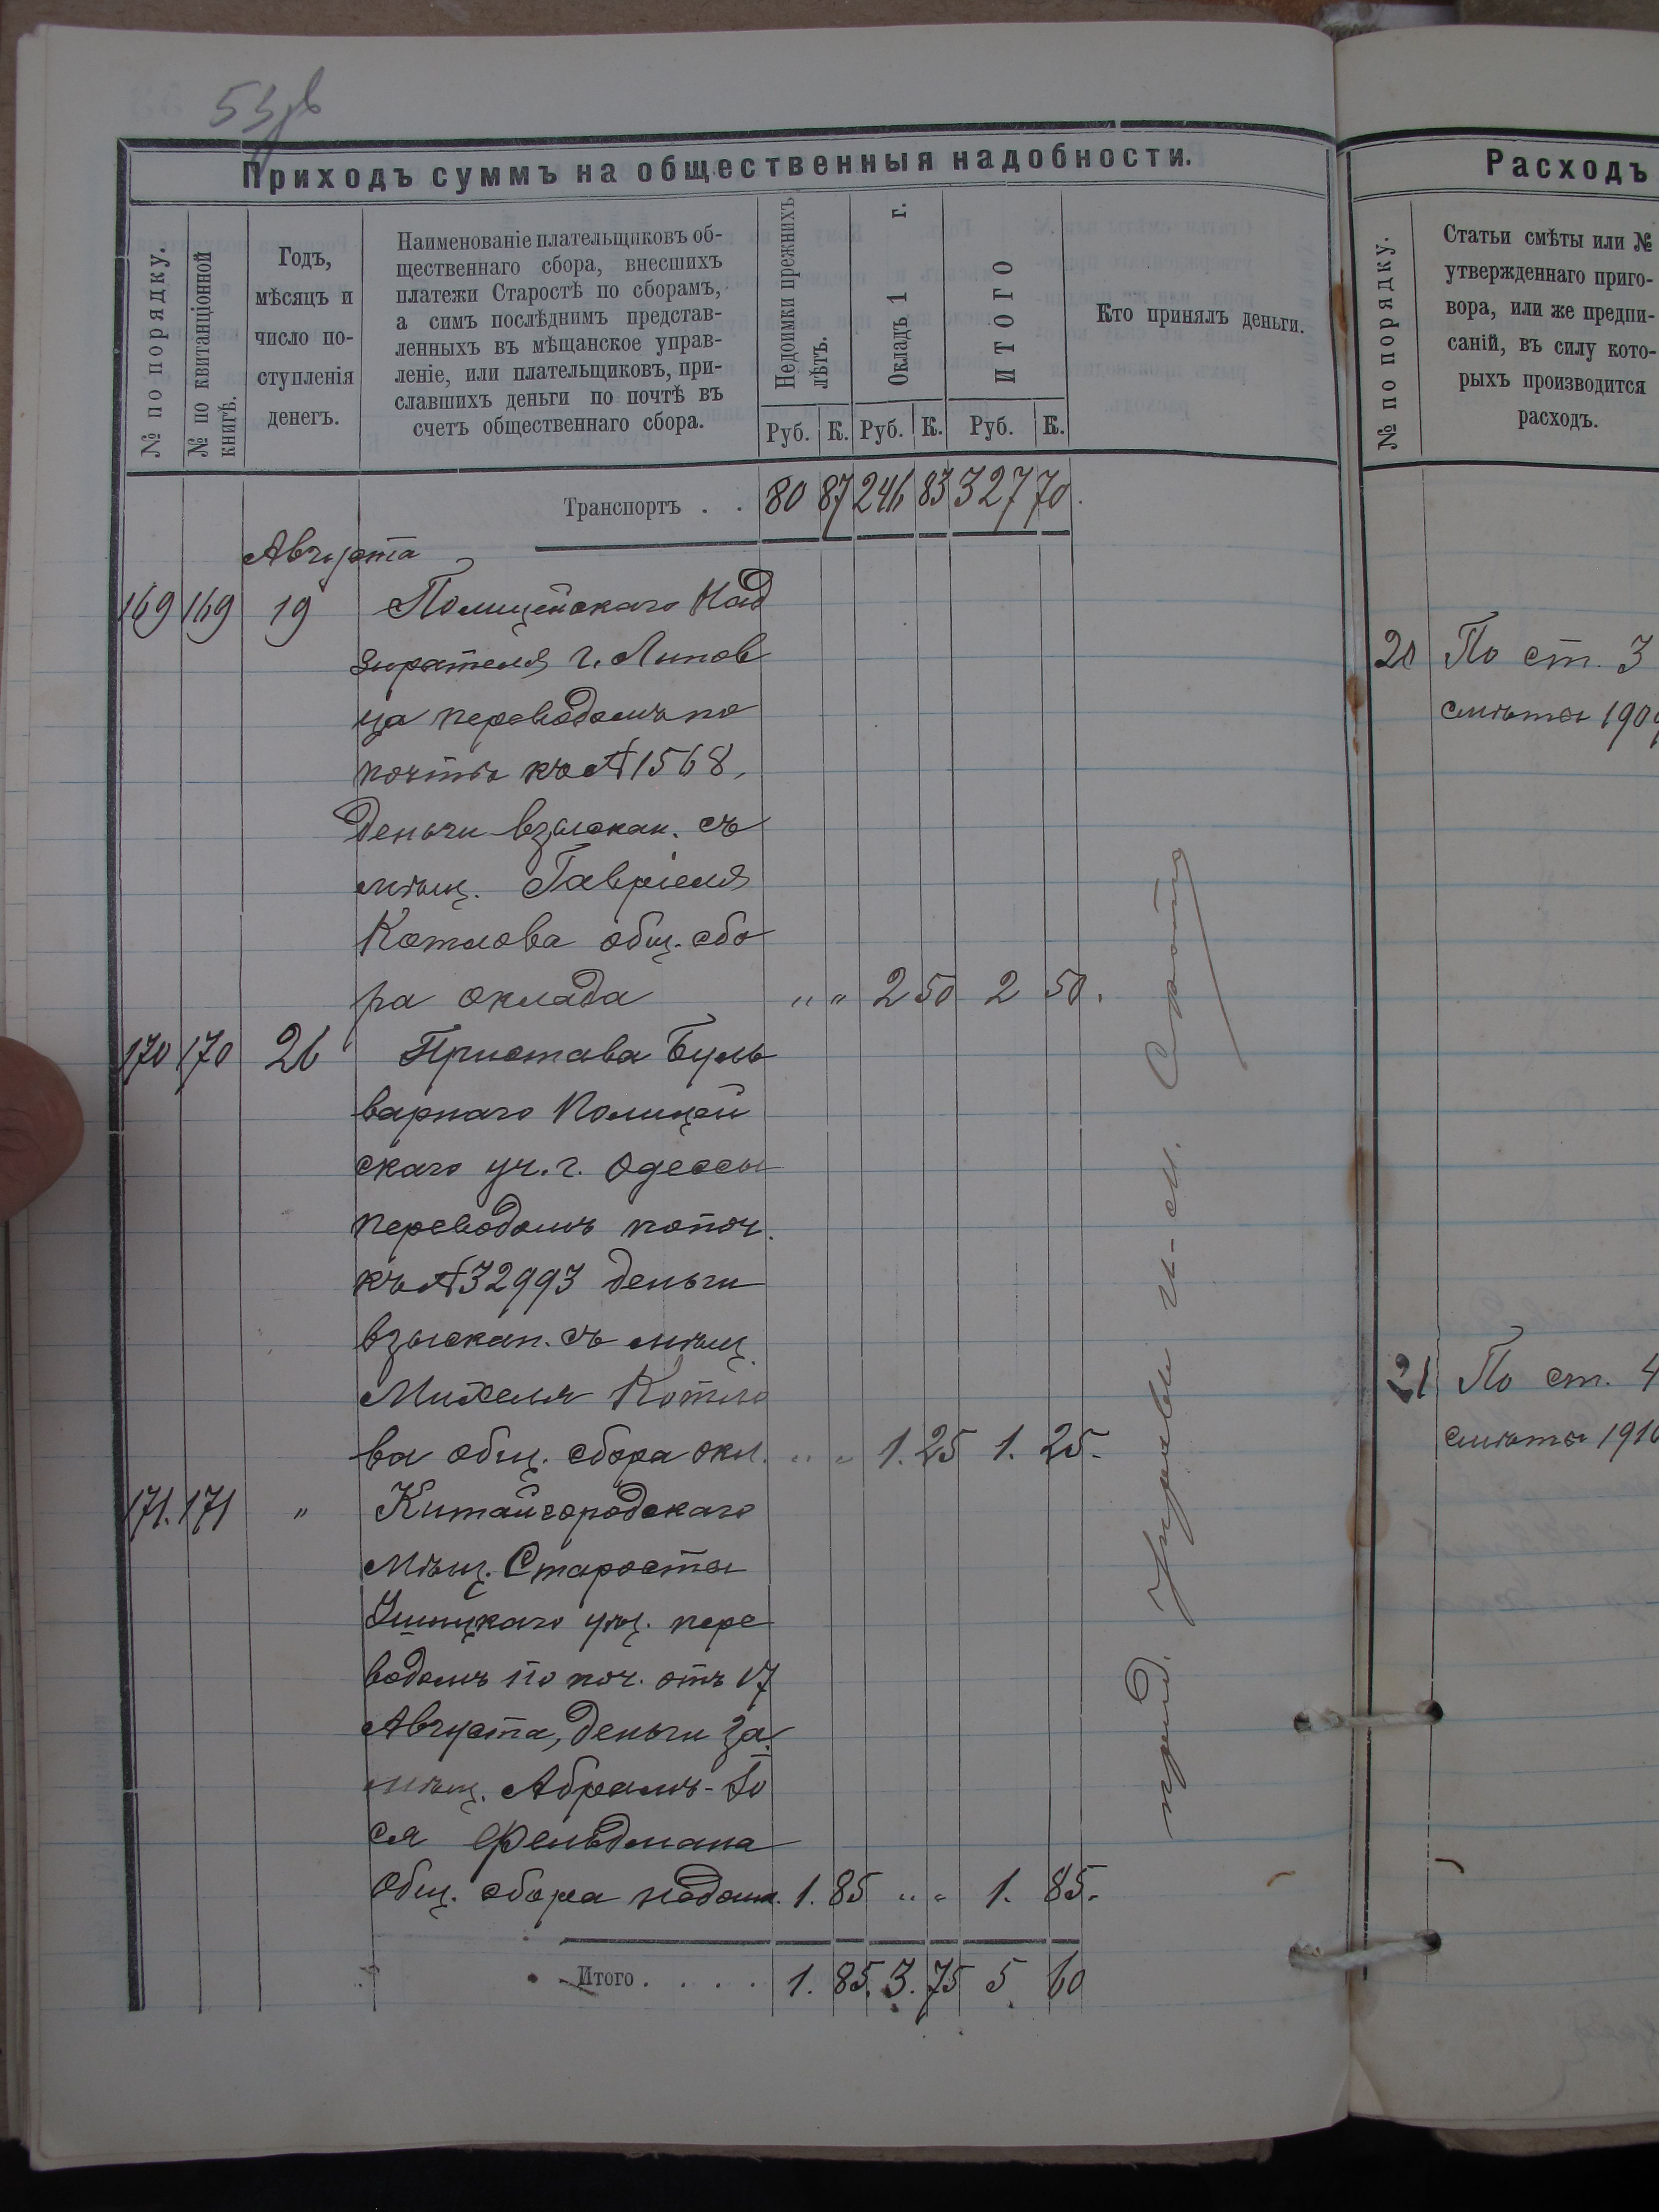 53 об
Приходъ суммъ на общественныя надобности.
№ по порядку.
№ по квитанціонной книгѣ.
Годъ,
мѣсяцъ и
число по-
ступленія
денегъ.
Наименованіе плательщиковъ об-
щественнаго сбора, внесшихъ
платежи Старостѣ по сборамъ,
а симъ послѣднимъ представ-
ленныхъ въ мѣщанское управ-
леніе, или плательщиковъ, при-
славшихъ деньги по почтѣ въ
счетъ общественнаго сбора.
Недоимки прежнихъ лѣтъ.
Окладъ 1 г.
ИТОГО
Руб. К. Руб. К. Руб. К.
Кто принялъ деньги.
Транспортъ . . 80 87 246 83 327 70.
Августа
169 169 19 Полицейскаго Над
зирателя г. Липов
ца переводомъ по
почтѣ къ № 1568,
деньги взыскан. съ
мѣщ. Гавріеля
Котлова общ. сбо
ра оклада „ „ 2 50 2 50.
170 170 26 Пристава Буль
варнаго Полицей
скаго уч. г. Одессы
переводомъ по поч.
къ № 32993 деньги
взыскан. съ мѣщ.
Михеля Котло
ва общ. сбора окл. „ „ 1. 25 1. 25.
171. 171 „ Китайгородскаго
Мѣщ. Старосты
Ушицкаго уѣз. пере
водомъ по поч. отъ 17
Августа, деньги за
мѣщ. Абрамъ-Іо
ся Фельдмана
Общ. сбора недоим. 1. 85 „ „ 1. 85.
Итого . . . . 1. 85. 3. 75 5 60
Расходъ
№ по порядку.
Статьи смѣты или №
утвержденнаго приго-
вора, или же предпи-
саній, въ силу кото-
рыхъ производится
расходъ.
20 По ст. 3
смѣты 1909
21 По ст. 4
смѣты 1910